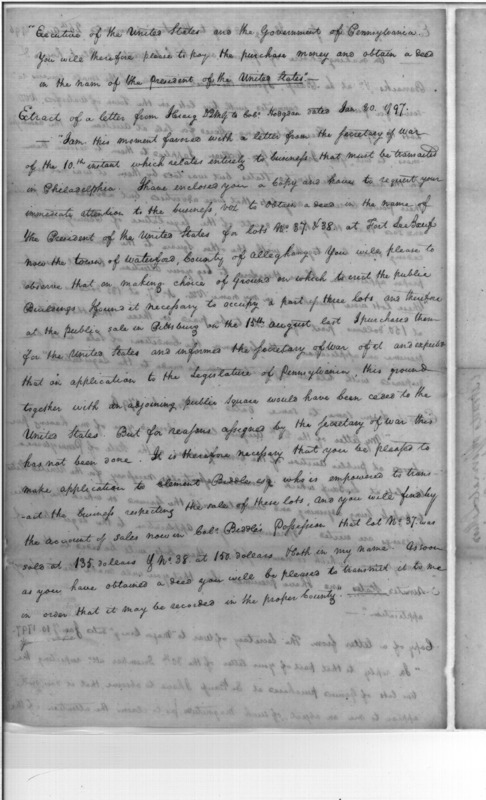 "Executive of the United States and the Government of Pennsylvania
You will therefore please to pay the purchase money and obtain a deed
in the name of the President of the United States."—
Extract of a letter from to Colo. Hodgdon dated Jan 30. 1797.
— "I am this moment favored with a letter from the Secretary of War
of the 10th instant which relates entirely to business that must be transacted
in Philadelphia. I have enclosed you a Copy and have to request your
immediate attention to the business viz to obtain a deed in the name of
the President of the United States for lots No. 37 & 38 at Fort Le Beuf
now the town of Waterford, County of alleghany. You will please to
observe that on making choice of Ground on which to erect the public
Buildings I found it necessary to occupy a part of these Lots and therefore
at the public sale in Pittsburg on the 15th august last I purchased them
for the United States and informed the Secretary of War of it and expected
that on application to the Legislature of Pennsylvania, this ground
together with an adjoining public square would have been ceded to the
United States. But for reasons assigned by the Secretary of War this
has not been done. It is therefore necessary that you be pleased to
make application to Biddle esq who is empowered to trans-
-act the business respecting the sale of these lots, and you will find by
the account of sales now in Colo. Biddles Possession that lot No. 37 was
sold at 135 dollars & No. 38 at 150 dollars both in my name. As soon
as you have obtained a deed you will be pleased to transmit it to me
in order that it may be recorded in the proper County.